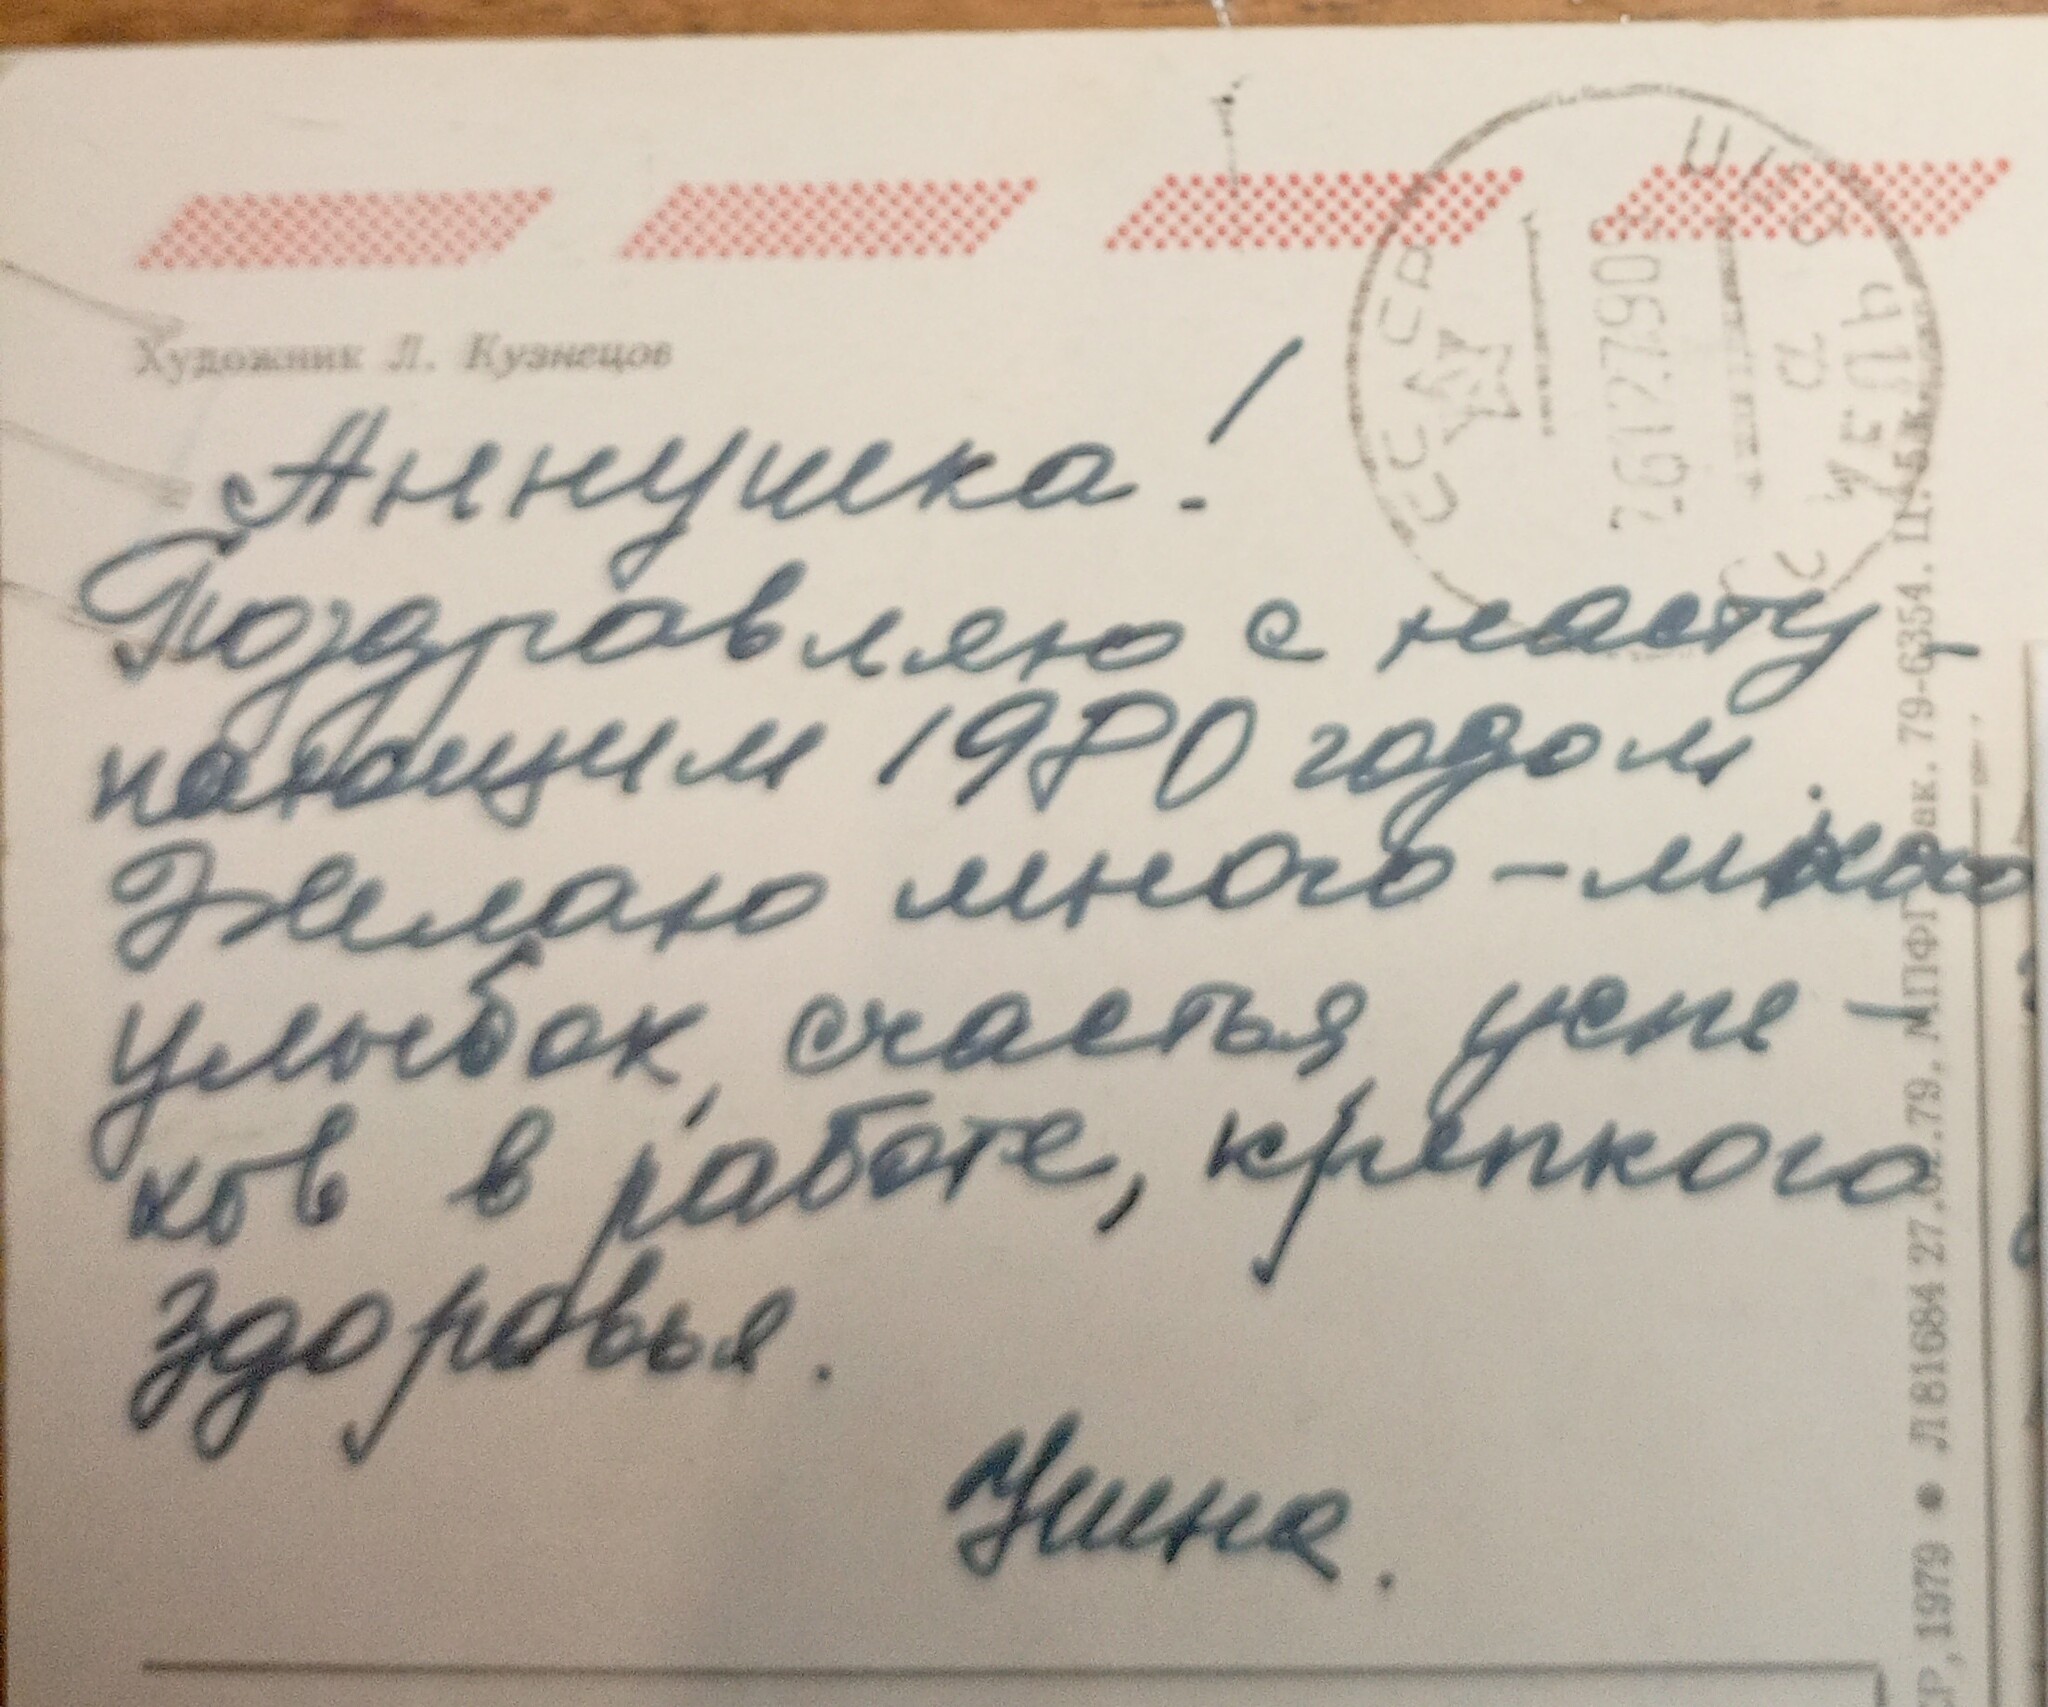 Художник Л. Кузнецов
Аннушка!
Поздравляю с насту-
пающим 1980 годом.
Желаю много-много
улыбок, счастья, успе-
хов в работе, крепкого
здоровья.
СССР
Л 81684 27.02.79. МПФГ ак. 79-6354. Ц. 5 к.
Р, 1979